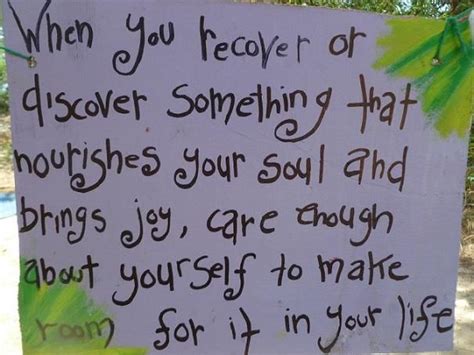 When you recover or
discover something that
nourishes your soul and
brings joy, care enough
about yourself to make
room for it in your life